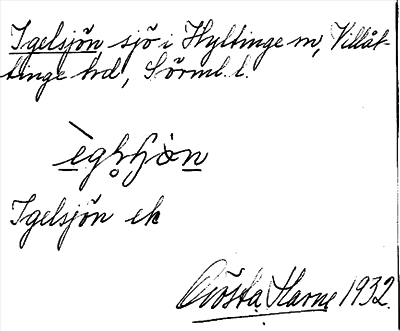 Igelsjön, sjö i Hyltinge sn, Villåt-
tinge hd, Sörml. l.
Igelsjön ek
Gösta Harne 1932.